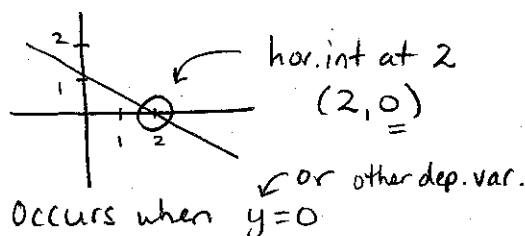 2
1
1 2
hor. int at 2
(2, 0)
or other dep. var.
Occurs when y=0